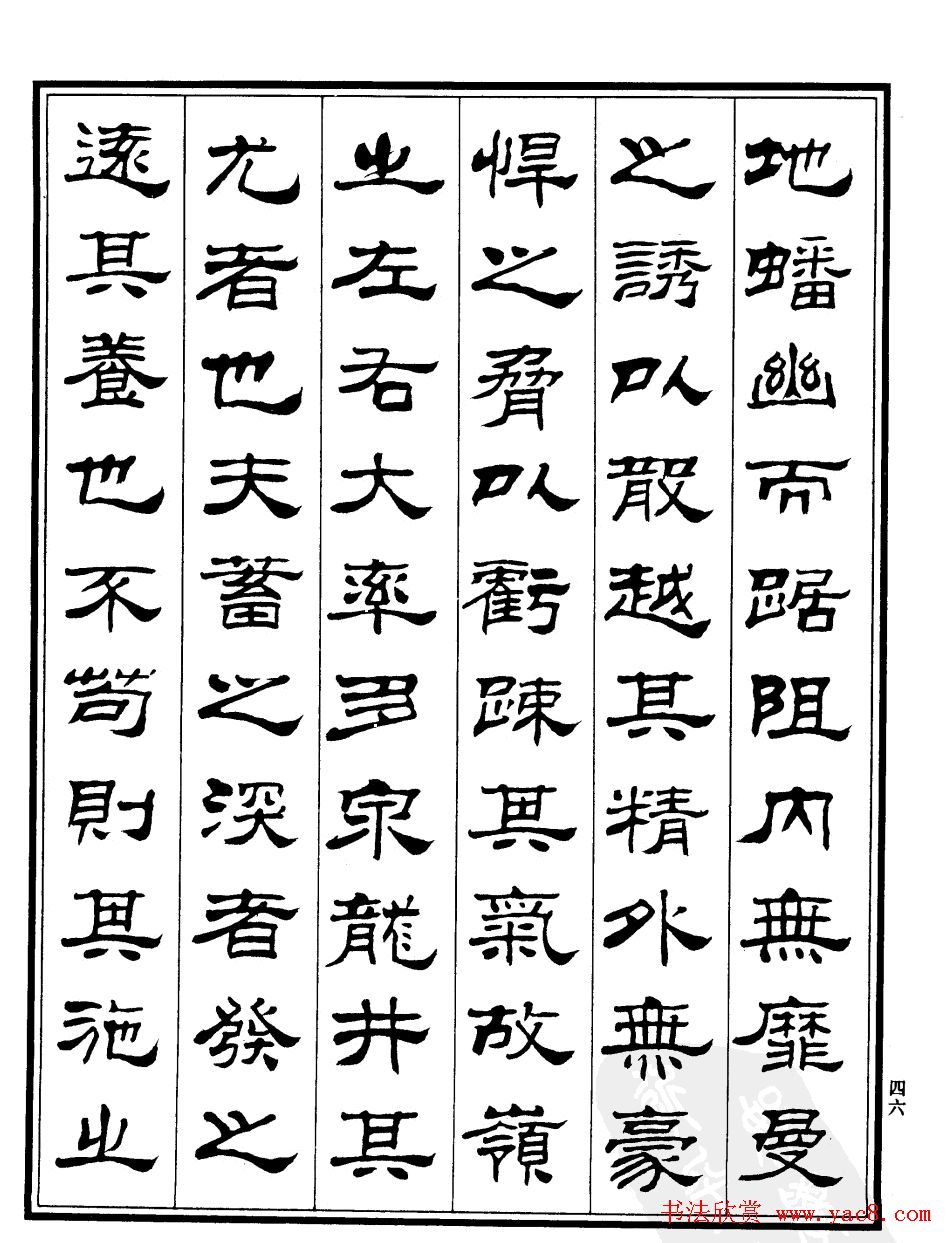 地蟠幽而踞阻内無靡曼
之誘以散越其精外無豪
悍之脅以虧踈其氣故嶺
之左右大率多泉龍井其
尤者也夫蓄之深者發之
遠其養也不苟則其施之
四六
书法欣赏 www.yac8.com